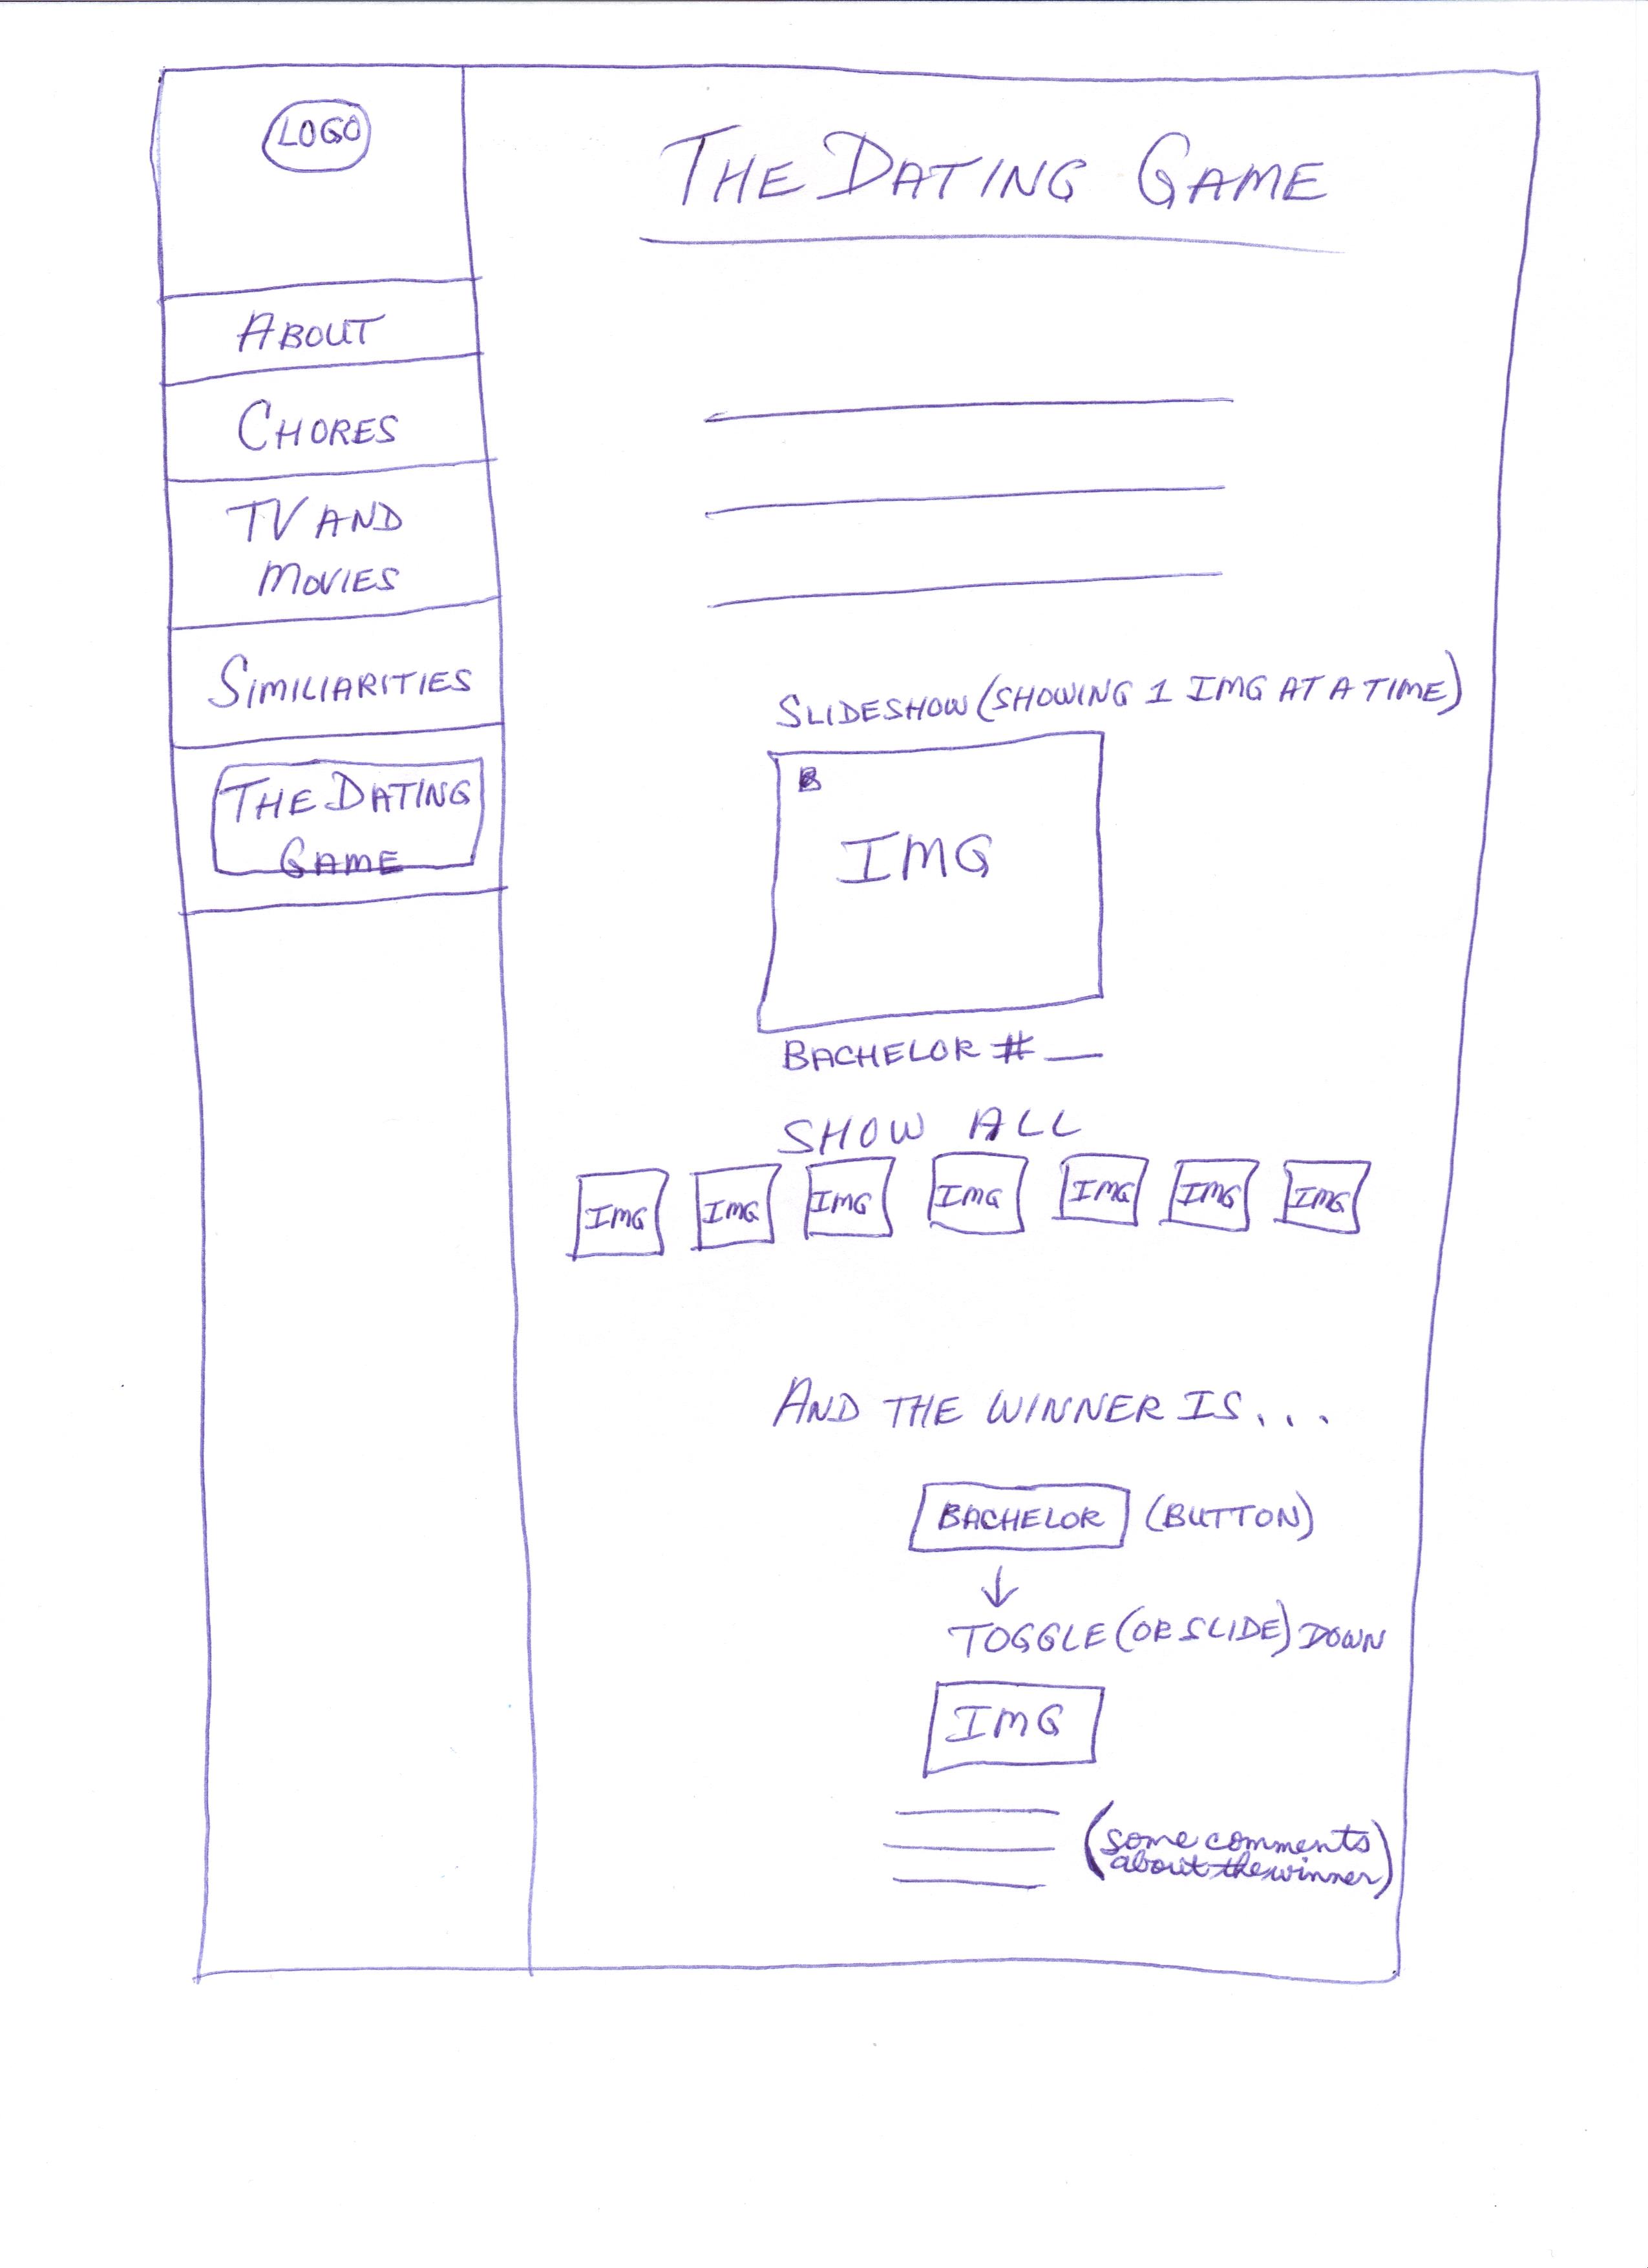 LOGO
ABOUT
CHORES
TV AND
MOVIES
SIMILIARITIES
THE DATING
GAME
THE DATING GAME
SLIDESHOW (SHOWING 1 IMG AT A TIME)
B
IMG
BACHELOR # __
SHOW ALL
IMG IMG IMG IMG IMG IMG IMG
AND THE WINNER IS...
BACHELOR (BUTTON)
TOGGLE (OR SLIDE) DOWN
IMG
(some comments
about the winner)